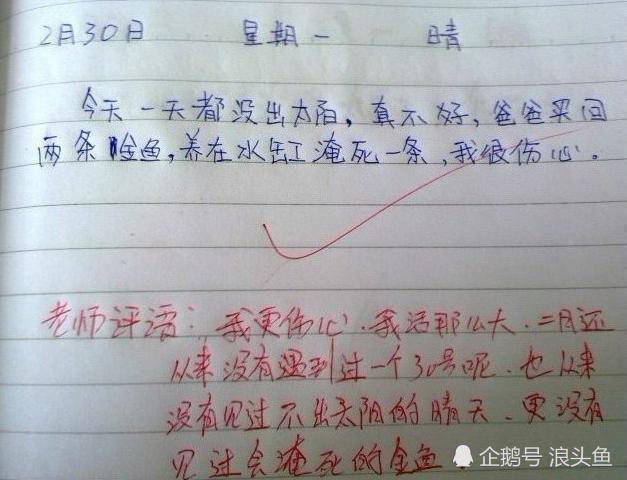 2月30日 星期一 晴
今天一天都没出太阳，真不好，爸爸买回
两条金鱼，养在水缸淹死一条，我很伤心。
老师评语：我更伤心．我活那么大．二月还
从来没有遇到过一个30号呢．也从来
没有见过不出太阳的晴天、更没有
见过会淹死的金鱼．
企鹅号 浪头鱼